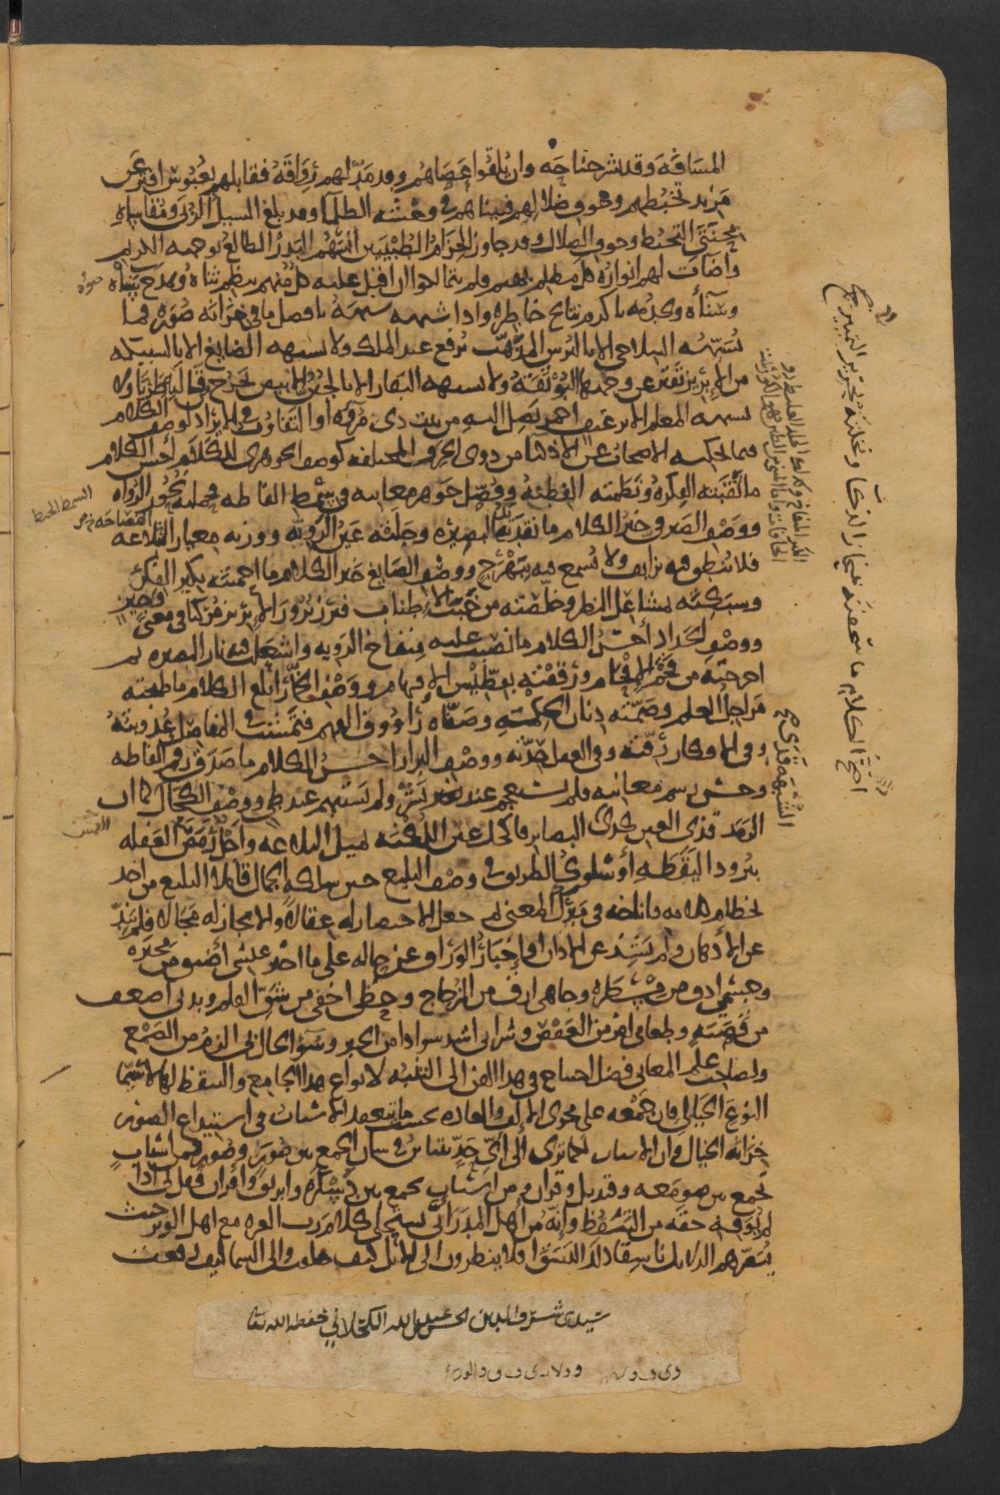 المسافة وقد نشر جناحه وان يلقوا عصاهم وقد مد لهم رواقه فقابلهم بعبوس افتر عن
مزيد تخبطهم وضلالهم فبيناهم في وحشة الظلماء وقد بلغ السيل الزبى ومقاساة
محنتي التخبط وخوف الضلال وقد جاوز الحزام الطبيين آنسهم البدر الطالع بوجهه الكريم
واضات لهم انواره كل مظلم بهيم ولم يتمالكوا ان اقبل عليه كل منهم ينظم ثناه ويمدح سناه
وسناءه ويخدمه باكرم نتايج خاطره واذا شبهه شبهه بافضل ما في خزانة صوره فما
يشبهه السلاحي الا بالترس المذهب يرفع عند الملك ولا يشبهه الصايغ الا بالسبيكة
من الابريز تفتر عن وجهها البوتقة ولا يشبهه البقار الا بالجبن الابيض يخرج من قالبه طريا ولا
يشبهه المعلم الا برغيف احمر يصل اليه من بيت ذي مروة او التفاوت في الايراد لوصف الكلام
فيما يحكيه الاصحاب عن الاذكيا من ذوي الحرف المختلفة كوصف الجوهري للكلام احسن الكلام
ما ثقبته الفكرة ونظمته الفطنة وفصل جوهر معانيه في سمط الفاظه فحملته نحور الرواة
ووصف الصيرفي خير الكلام ما نقدته يد البصيرة وجلته عين الروية ووزنه معيار الفصاحة
فلا ينطق فيه بزايف ولا يسمع فيه ببهرج ووصف الصايغ خير الكلام ما احميته بكير الفكر
وسبكته بمشاعل النظر وخلصته من خبث الاطناب فبرز بروز الابريز مركبا في معنى وجيز
ووصف الحداد احسن الكلام ما نصبت عليه منفاخ الروية واشعلت فيه نار البصيرة ثم
اخرجته من فحم الافحام ورققته بفطيس الافهام ووصف الخمار ابلغ الكلام ما طبخته
مراجل العلم وضمته دنان الحكمة وصفاه راووق الفهم فتمشت في المفاصل عذوبته
وفي الافكار رقته وفي العقل حدته ووصف البزاز احسن الكلام ما صدق رقم الفاظه
وحسن رسم معانيه فلم يستعجم عند نشر ولم يستبهم عند طي ووصف الكحال كما ان
الرمد قذى العين كذى البصاير فاكحل عين اللكنة بميل البلاغة واجل رمص الغفلة
ببرود اليقظة او سلوك الطريق في وصف البليغ حين سلكه الجمال قايلا البليغ من اخذ
بخطام كلامه فاناخه في مبرك المعنى ثم جعل الاختصار له عقالا والايجاز له مجالا فلم يند
عن الاذهان ولم يشذ عن الاذان او اخبار الوراق عن حاله على ما اخبر عيشي اضيق من محبرة
وجسمي ادق من مسطرة وجاهي ارق من الزجاج وحظي اخفى من شق القلم وبدني اضعف
من قصبة وطعامي امر من العفص وشرابي اشد سوادا من الحبر وسوء الحال لي الزم من الصمغ
ولصاحب علم المعاني فضل احتياج في هذا الفن الى التنبه لانواع هذا الجامع والتيقظ لها لا سيما
النوع الخيالي فان جمعه على مجرى الالف والعادة بحسب ما تنعقد الاسباب في استيداع الصور
خزانة الخيال وان الاسباب لكما ترى الى اي حد تتباين في شان الجمع بين صور وصور فمن اسباب
تجمع بين صومعة وقنديل وقرآن ومن اسباب تجمع بين دسكرة وابريق واقران فقل لي اذا
لم يوفه حقه من التيقظ وانه من اهل المدر انى يستحلي كلام رب العزة مع اهل الوبر حيث
يبصرهم الدلايل ناسقا ذلك النسق افلا ينظرون الى الابل كيف خلقت والى السما كيف رفعت
صوره
السمط الخيط
الفصاحة
العمش
سيدي شرف الدين الحسن عبد الله الكحلاني حفظه الله تعالى